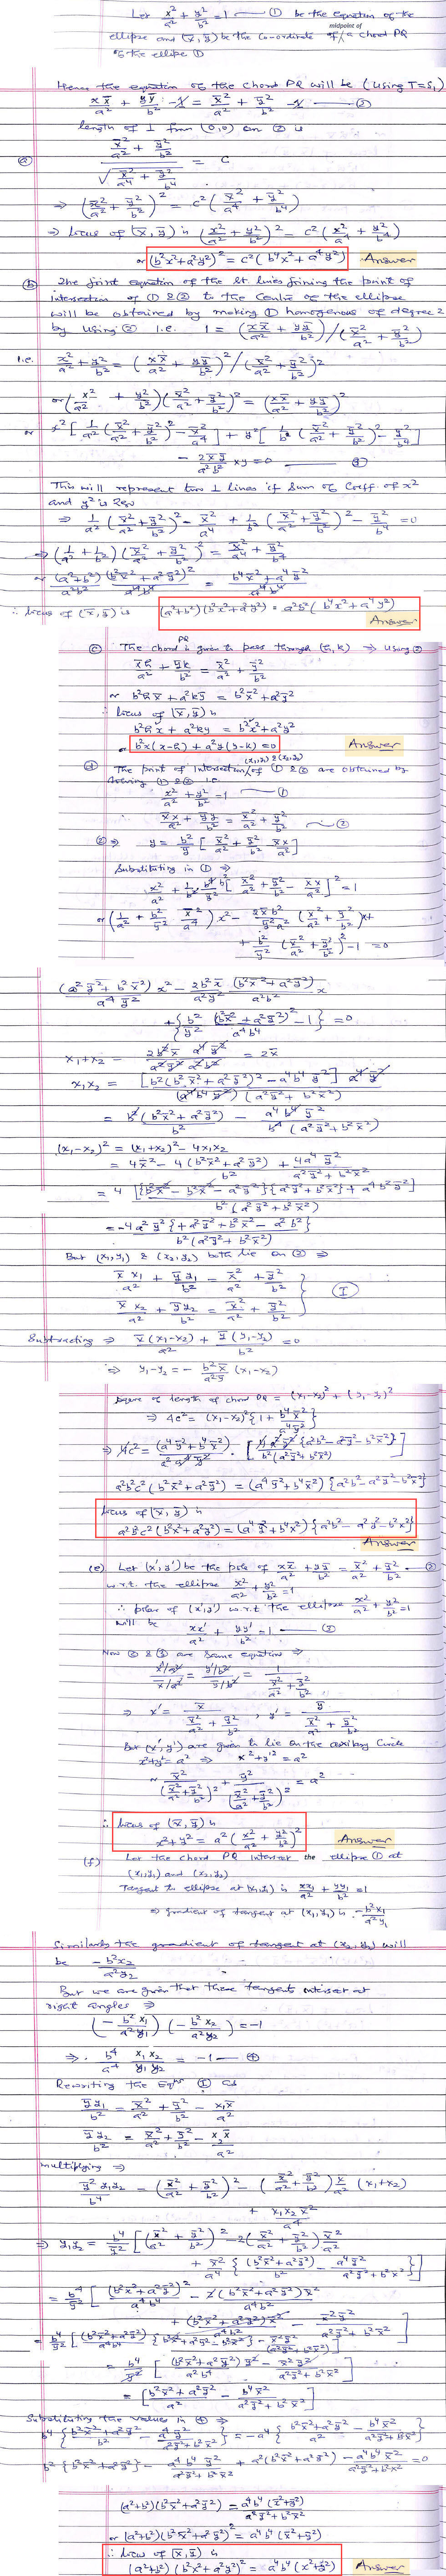 Let x²/a² + y²/b² = 1 — ① be the equation of the
midpoint of
ellipse and (x̄, ȳ) be the co-ordinate of a chord PQ
of the ellipse ①
Hence the equation of the chord PQ will be (using T=S₁)
xx̄/a² + yȳ/b² - 1 = x̄²/a² + ȳ²/b² - 1 — ②
length of ⊥ from (0,0) on ② is
ⓐ (x̄²/a² + ȳ²/b²) / √(x̄²/a⁴ + ȳ²/b⁴) = c
⇒ (x̄²/a² + ȳ²/b²)² = c² (x̄²/a⁴ + ȳ²/b⁴)
⇒ locus of (x̄, ȳ) is (x²/a² + y²/b²)² = c² (x²/a⁴ + y²/b⁴)
or (b²x² + a²y²)² = c² (b⁴x² + a⁴y²) Answer
ⓑ The joint equation of the st lines joining the point of
intersection of ① & ② to the centre of the ellipse
will be obtained by making ① homogenous of degree 2
by using ② i.e. 1 = (xx̄/a² + yȳ/b²) / (x̄²/a² + ȳ²/b²)
i.e. x²/a² + y²/b² = (xx̄/a² + yȳ/b²)² / (x̄²/a² + ȳ²/b²)²
or (x²/a² + y²/b²) (x̄²/a² + ȳ²/b²)² = (xx̄/a² + yȳ/b²)²
or x² [1/a² (x̄²/a² + ȳ²/b²)² - x̄²/a⁴] + y² [1/b² (x̄²/a² + ȳ²/b²)² - ȳ²/b⁴]
- 2x̄ȳ/a²b² xy = 0 — ③
This will represent two ⊥ lines if sum of coeff. of x²
and y² is zero
⇒ 1/a² (x̄²/a² + ȳ²/b²)² - x̄²/a⁴ + 1/b² (x̄²/a² + ȳ²/b²)² - ȳ²/b⁴ = 0
⇒ (1/a² + 1/b²) (x̄²/a² + ȳ²/b²)² = x̄²/a⁴ + ȳ²/b⁴
or (a²+b²)/a²b² (b²x̄² + a²ȳ²)²/a⁴b⁴ = (b⁴x̄² + a⁴ȳ²)/a⁴b⁴
∴ locus of (x̄, ȳ) is (a²+b²)(b²x²+a²y²)² = a²b² (b⁴x² + a⁴y²)
Answer
ⓒ The chord PQ is given to pass through (h, k) ⇒ using ②
x̄h/a² + ȳk/b² = x̄²/a² + ȳ²/b²
or b²hx̄ + a²kȳ = b²x̄² + a²ȳ²
∴ locus of (x̄, ȳ) is
b²hx + a²ky = b²x² + a²y²
or b²x(x-h) + a²y(y-k) = 0 Answer
ⓓ The point of intersection (x₁,y₁) & (x₂,y₂) of ① & ② are obtained by
solving ① & ② i.e.
x²/a² + y²/b² = 1 — ①
xx̄/a² + yȳ/b² = x̄²/a² + ȳ²/b² — ②
② ⇒ y = b²/ȳ [x̄²/a² + ȳ²/b² - xx̄/a²]
Substituting in ① ⇒
x²/a² + 1/b² b⁴/ȳ² [x̄²/a² + ȳ²/b² - xx̄/a²]² = 1
or (1/a² + b²/ȳ² x̄²/a⁴) x² - 2x̄b²/ȳ²a² (x̄²/a² + ȳ²/b²) x +
+ b²/ȳ² (x̄²/a² + ȳ²/b²)² - 1 = 0
(a²ȳ² + b²x̄²)/a⁴ȳ² x² - 2b²x̄/a²ȳ² (b²x̄² + a²ȳ²)/a²b² x
+ {b²/ȳ² (b²x̄² + a²ȳ²)²/a⁴b⁴ - 1} = 0
x₁+x₂ = 2b²x̄/a²ȳ² a⁴ȳ²/a²b² = 2x̄
x₁x₂ = [b²(b²x̄² + a²ȳ²)² - a⁴b⁴ȳ²] a⁴ȳ² / (a⁴b⁴ȳ²)(a²ȳ² + b²x̄²)
= b²(b²x̄² + a²ȳ²)/b² - a⁴b⁴ȳ²/b⁴(a²ȳ² + b²x̄²)
(x₁-x₂)² = (x₁+x₂)² - 4x₁x₂
= 4x̄² - 4(b²x̄² + a²ȳ²)/b² + 4a⁴ȳ²/(a²ȳ² + b²x̄²)
= 4 [{b²x̄² - b²x̄² - a²ȳ²}{a²ȳ² + b²x̄²} + a⁴b²ȳ²] / b²(a²ȳ² + b²x̄²)
= -4a²ȳ² {+a²ȳ² + b²x̄² - a²b²} / b²(a²ȳ² + b²x̄²)
But (x₁,y₁) & (x₂,y₂) both lie on ② ⇒
x̄x₁/a² + ȳy₁/b² = x̄²/a² + ȳ²/b²
x̄x₂/a² + ȳy₂/b² = x̄²/a² + ȳ²/b² } Ⓘ
Subtracting ⇒ x̄(x₁-x₂)/a² + ȳ(y₁-y₂)/b² = 0
⇒ y₁-y₂ = - b²x̄/a²ȳ (x₁-x₂)
square of length of chord PQ = (x₁-x₂)² + (y₁-y₂)²
⇒ 4c² = (x₁-x₂)² {1 + b⁴x̄²/a⁴ȳ²}
⇒ 4c² = (a⁴ȳ² + b⁴x̄²)/a⁴ȳ² · [4a²ȳ² {a²b² - a²ȳ² - b²x̄²} / b²(a²ȳ² + b²x̄²)]
a²b²c² (b²x̄² + a²ȳ²) = (a⁴ȳ² + b⁴x̄²) {a²b² - a²ȳ² - b²x̄²}
locus of (x̄, ȳ) is
a²b²c² (b²x² + a²y²) = (a⁴y² + b⁴x²) {a²b² - a²y² - b²x²}
Answer
(e) Let (x', y') be the pole of xx̄/a² + yȳ/b² = x̄²/a² + ȳ²/b² — ②
w.r.t. the ellipse x²/a² + y²/b² = 1
∴ polar of (x', y') w.r.t the ellipse x²/a² + y²/b² = 1
will be
xx'/a² + yy'/b² = 1 — ③
Now ② & ③ are same equation ⇒
(x'/a²)/(x̄/a²) = (y'/b²)/(ȳ/b²) = 1/(x̄²/a² + ȳ²/b²)
⇒ x' = x̄/(x̄²/a² + ȳ²/b²), y' = ȳ/(x̄²/a² + ȳ²/b²)
But (x', y') are given to lie on the auxiliary circle
x²+y² = a² ⇒ x'²+y'² = a²
or x̄²/(x̄²/a² + ȳ²/b²)² + ȳ²/(x̄²/a² + ȳ²/b²)² = a²
∴ locus of (x̄, ȳ) is
x²+y² = a² (x²/a² + y²/b²)² Answer
(f) Let the chord PQ intersect the ellipse ① at
(x₁,y₁) and (x₂,y₂)
Tangent to ellipse at (x₁,y₁) is xx₁/a² + yy₁/b² = 1
⇒ gradient of tangent at (x₁,y₁) is - b²x₁/a²y₁
Similarly the gradient of tangent at (x₂, y₂) will
be - b²x₂/a²y₂
But we are given that these tangents intersect at
right angles ⇒
(- b²x₁/a²y₁) (- b²x₂/a²y₂) = -1
⇒ b⁴/a⁴ x₁x₂/y₁y₂ = -1 — ④
Rewriting the eqns Ⓘ as
ȳy₁/b² = x̄²/a² + ȳ²/b² - x₁x̄/a²
ȳy₂/b² = x̄²/a² + ȳ²/b² - x₂x̄/a²
multiplying ⇒
ȳ²y₁y₂/b⁴ = (x̄²/a² + ȳ²/b²)² - (x̄²/a² + ȳ²/b²) x̄/a² (x₁+x₂)
+ x₁x₂x̄²/a⁴
⇒ y₁y₂ = b⁴/ȳ² [(x̄²/a² + ȳ²/b²)² - 2(x̄²/a² + ȳ²/b²) x̄²/a²
+ x̄²/a⁴ {(b²x̄² + a²ȳ²)/b² - a⁴ȳ²/(a²ȳ² + b²x̄²)}]
= b⁴/ȳ² [(b²x̄² + a²ȳ²)²/a⁴b⁴ - 2(b²x̄² + a²ȳ²)x̄²/a⁴b²
+ (b²x̄² + a²ȳ²)x̄²/a⁴b² - x̄²ȳ²/(a²ȳ² + b²x̄²)]
= b⁴/ȳ² [(b²x̄² + a²ȳ²)/a⁴b⁴ {b²x̄² + a²ȳ² - b²x̄²} - x̄²ȳ²/(a²ȳ² + b²x̄²)]
= b⁴/ȳ² [(b²x̄² + a²ȳ²)ȳ²/a²b⁴ - x̄²ȳ²/(a²ȳ² + b²x̄²)]
= [(b²x̄² + a²ȳ²)/a² - b⁴x̄²/(a²ȳ² + b²x̄²)]
Substituting the values in ④ ⇒
b⁴ {(b²x̄² + a²ȳ²)/b² - a⁴ȳ²/(a²ȳ² + b²x̄²)} = -a⁴ {(b²x̄² + a²ȳ²)/a² - b⁴x̄²/(a²ȳ² + b²x̄²)}
b² {b²x̄² + a²ȳ²} - a⁴b⁴ȳ²/(a²ȳ² + b²x̄²) + a²(b²x̄² + a²ȳ²) - a⁴b⁴x̄²/(a²ȳ² + b²x̄²) = 0
(a²+b²)(b²x̄² + a²ȳ²) = a⁴b⁴(x̄² + ȳ²)/(a²ȳ² + b²x̄²)
or (a²+b²)(b²x̄² + a²ȳ²)² = a⁴b⁴(x̄² + ȳ²)
∴ locus of (x̄, ȳ) is
(a²+b²)(b²x² + a²y²)² = a⁴b⁴(x²+y²) Answer